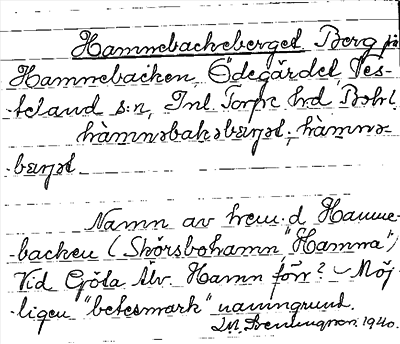 Hamnebackeberget Berg på
Hamnebacken, Ödegärdet Ves-
-terland s:n, Inl. Torpe hrd Bohl.
hàmnəbakəbærjət; hàmnə-
-bærjət
Namn av hem. d Hamne-
-backen (Skörsbohamn, "Hamna")
Vid Göta Älv. Hamn förr? Möj-
-ligen "betesmark" namngrund.
1940.